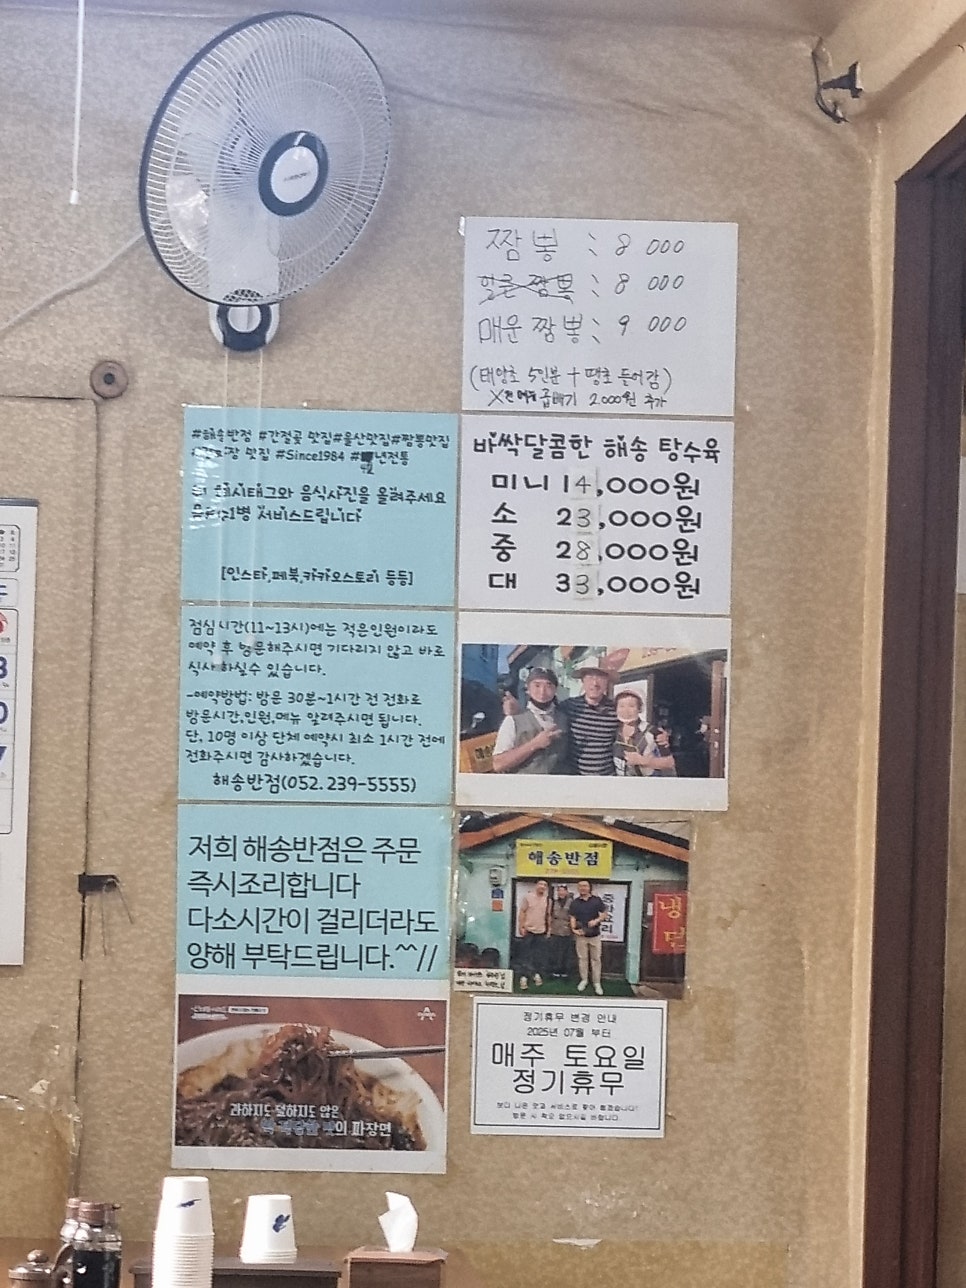 짬뽕 : 8 000
얼큰 짬뽕 : 8 000
매운 짬뽕 : 9 000
(태양초 5인분 + 땡초 들어감)
곱빼기 2.000원 추가
#해송반점 #간절곶 맛집#울산맛집#짬뽕맛집
맛집 #Since1984 #42년전통
해시태그와 음식사진을 올려주세요
1병 서비스드립니다
[인스타,페북,카카오스토리 등등]
바싹달콤한 해송 탕수육
미니 14,000원
소 23,000원
중 28,000원
대 33,000원
점심시간(11~13시)에는 적은인원이라도
예약 후 방문해주시면 기다리지 않고 바로
식사하실수 있습니다.
-예약방법: 방문 30분~1시간 전 전화로
방문시간,인원,메뉴 알려주시면 됩니다.
단, 10명 이상 단체 예약시 최소 1시간 전에
전화주시면 감사하겠습니다.
해송반점(052.239-5555)
저희 해송반점은 주문
즉시조리합니다
다소시간이 걸리더라도
양해 부탁드립니다.^^//
해송반점
중
화
요
리
냉
면
과하지도 덜하지도 않은
맛의 짜장면
정기휴무 변경 안내
2025년 07월 부터
매주 토요일
정기휴무
보다 나은 맛과 서비스로 찾아 뵙겠습니다!
방문 시 착오 없으시길 바랍니다.